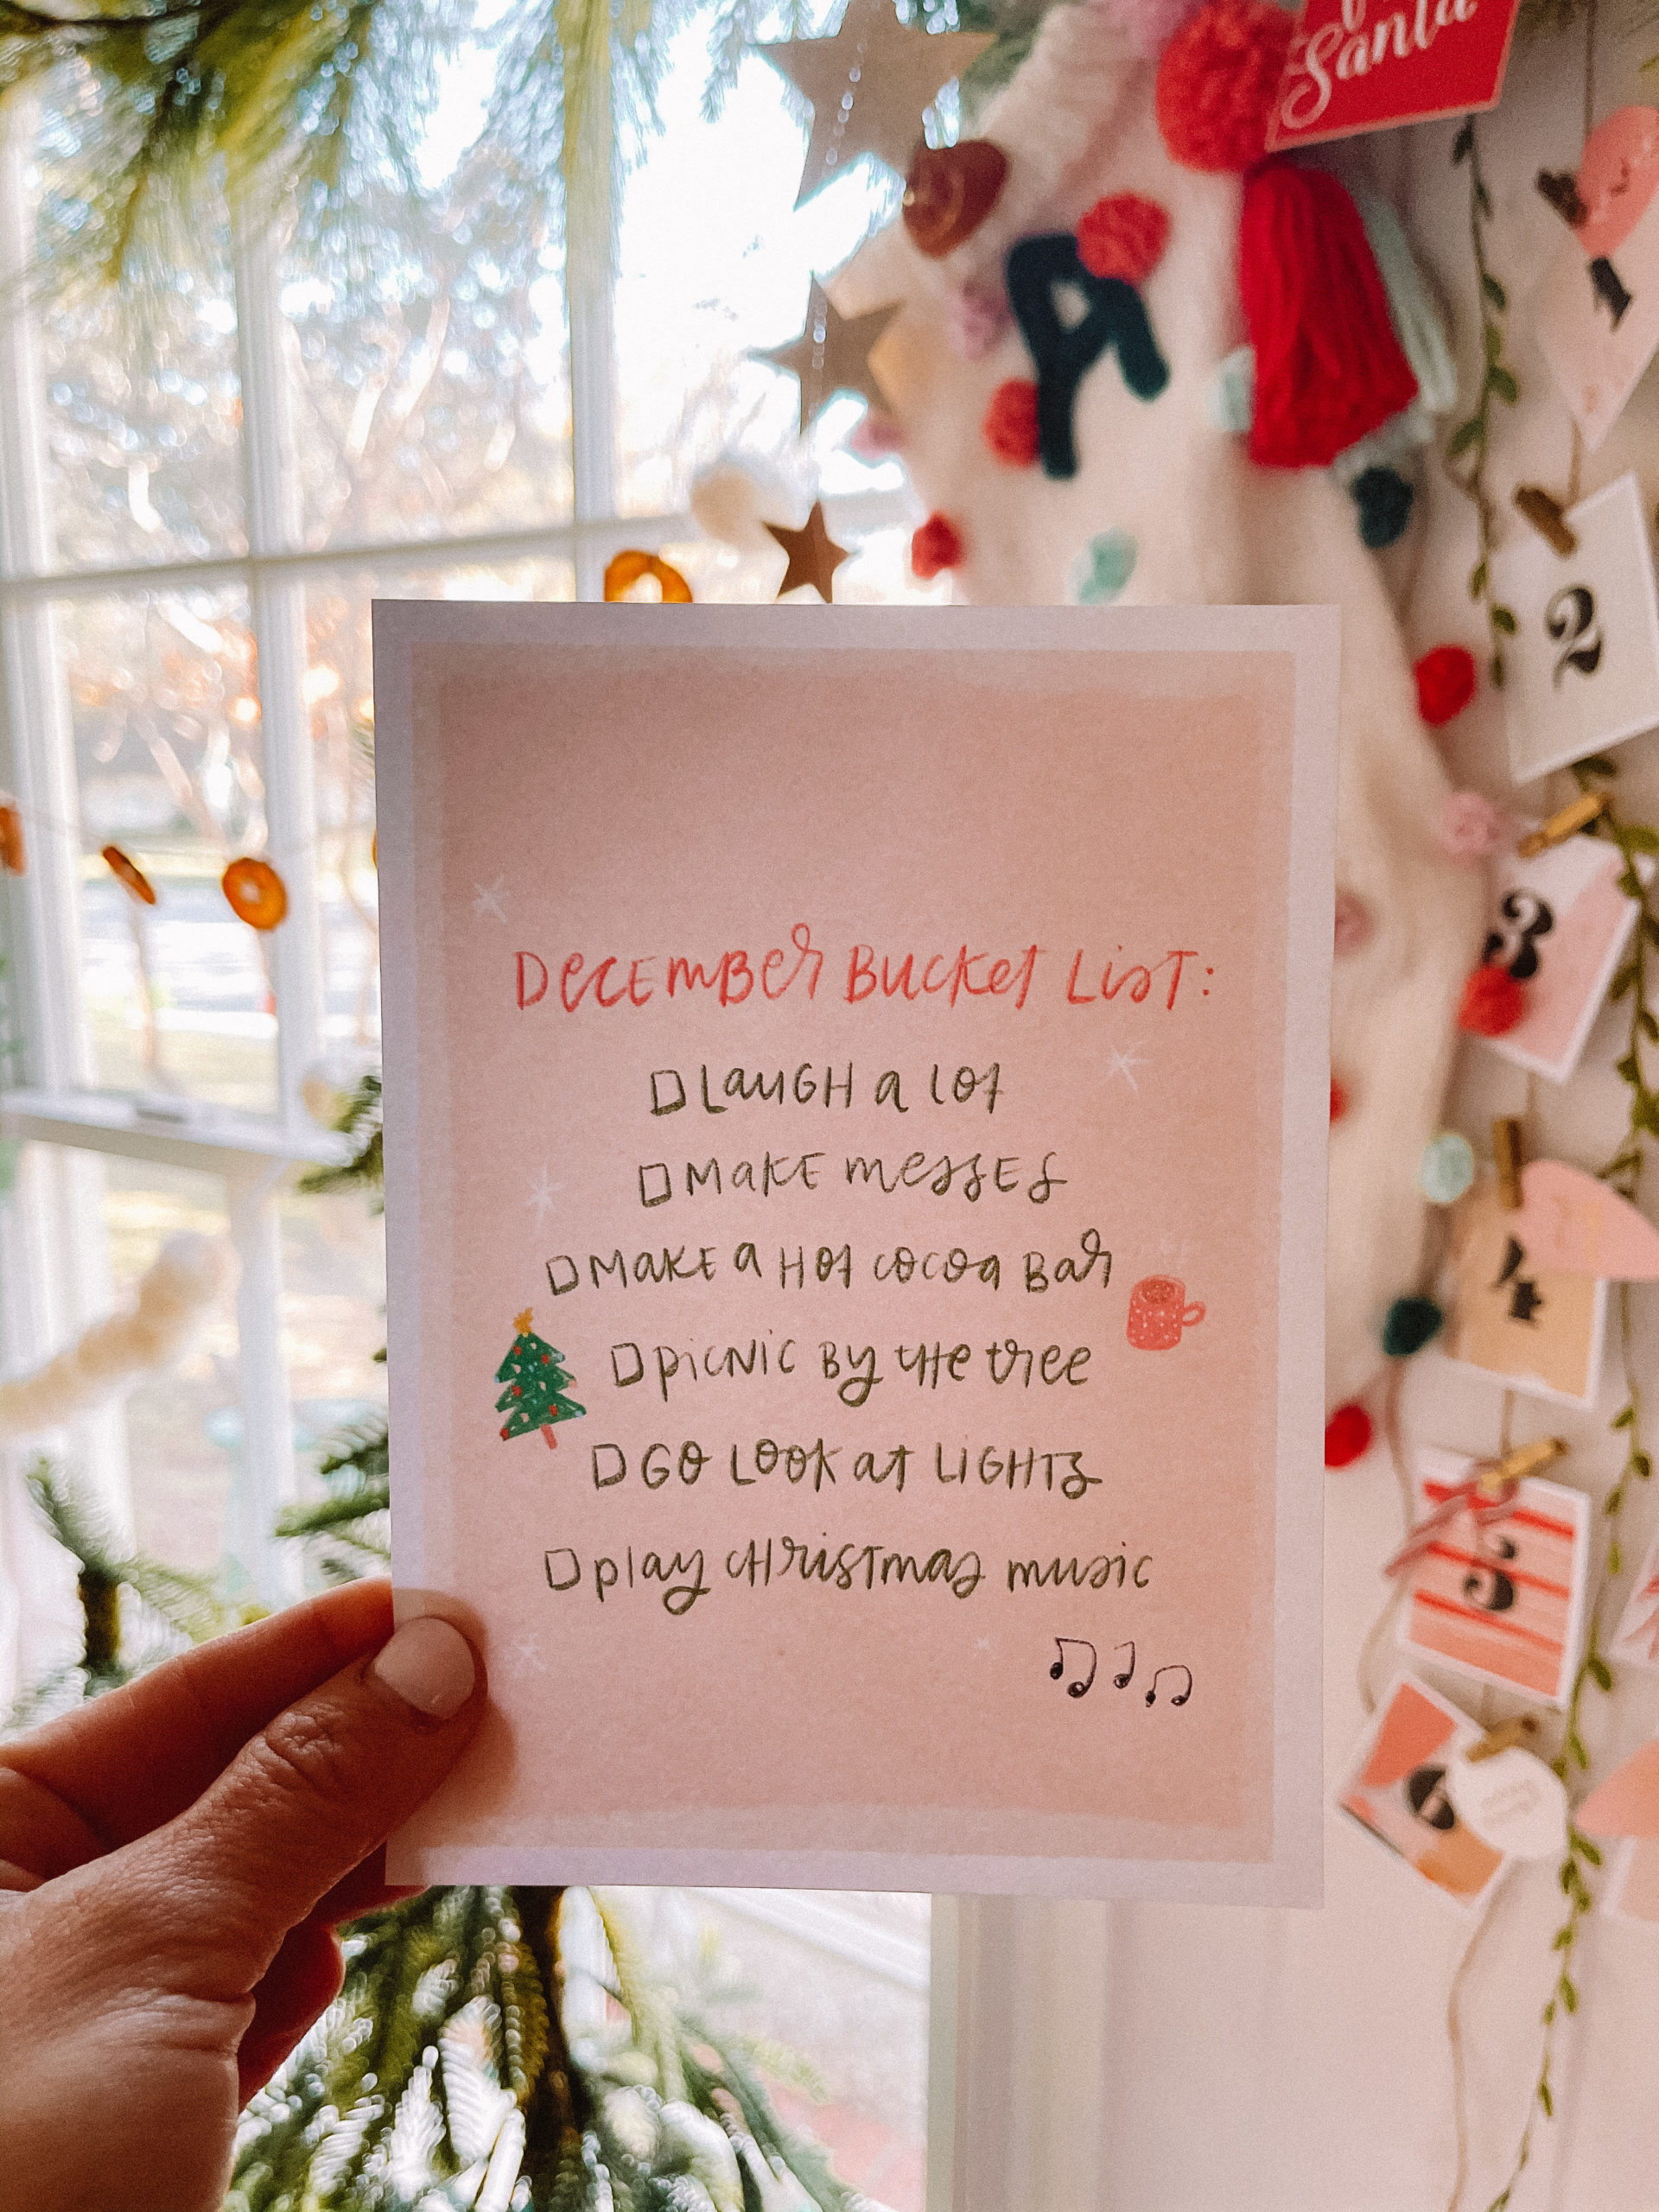 Santa
2
3
4
5
DECEMBER BUCKET LIST:
LAUGH A LOT
MAKE MESSES
MAKE A HOT COCOA BAR
PICNIC BY THE TREE
GO LOOK AT LIGHTS
PLAY CHRISTMAS MUSIC